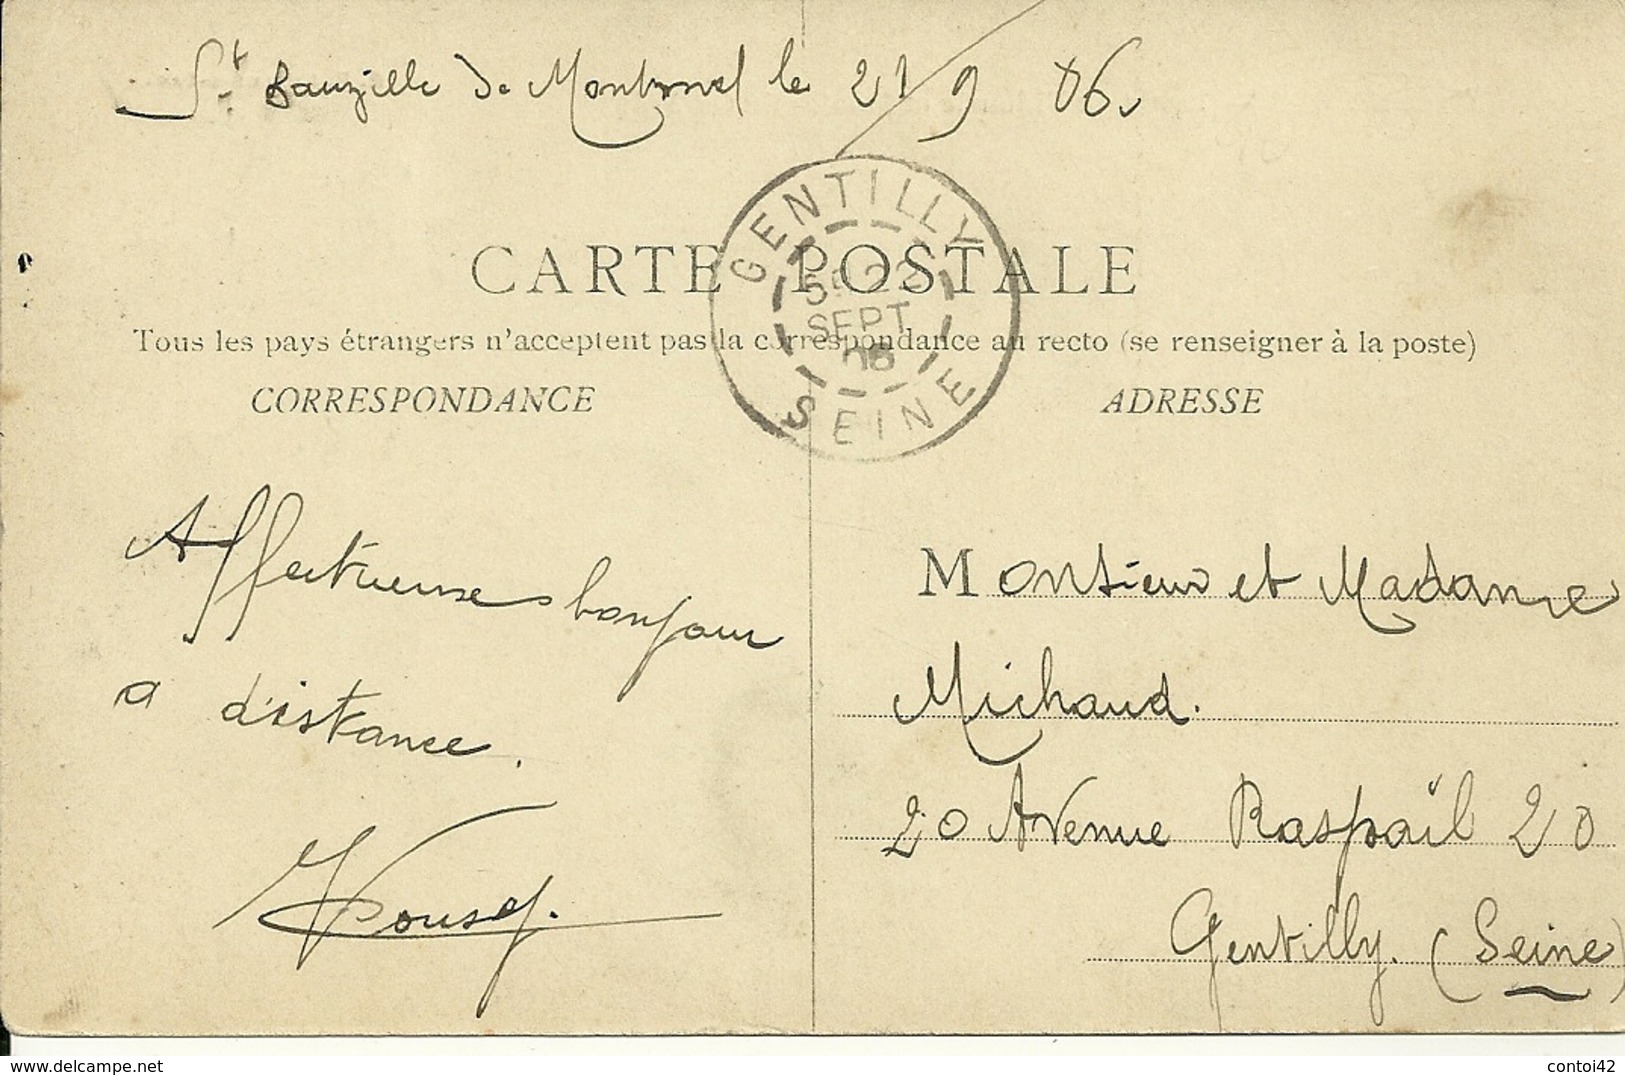 St Bauzille de Montmel le 21/9 06.
GENTILLY
22
SEPT
06
SEINE
CARTE POSTALE
Tous les pays étrangers n'acceptent pas la correspondance au recto (se renseigner à la poste)
CORRESPONDANCE
ADRESSE
Affectueuse bonjour
a distance.
Monsieur et Madame
Michaud.
20 Avenue Raspaïl 20
Gentilly. (Seine)
www.delcampe.net
contoi42